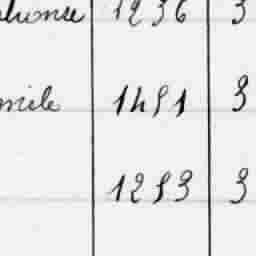 phonse 1236 3
mile 1451 3
1253 3